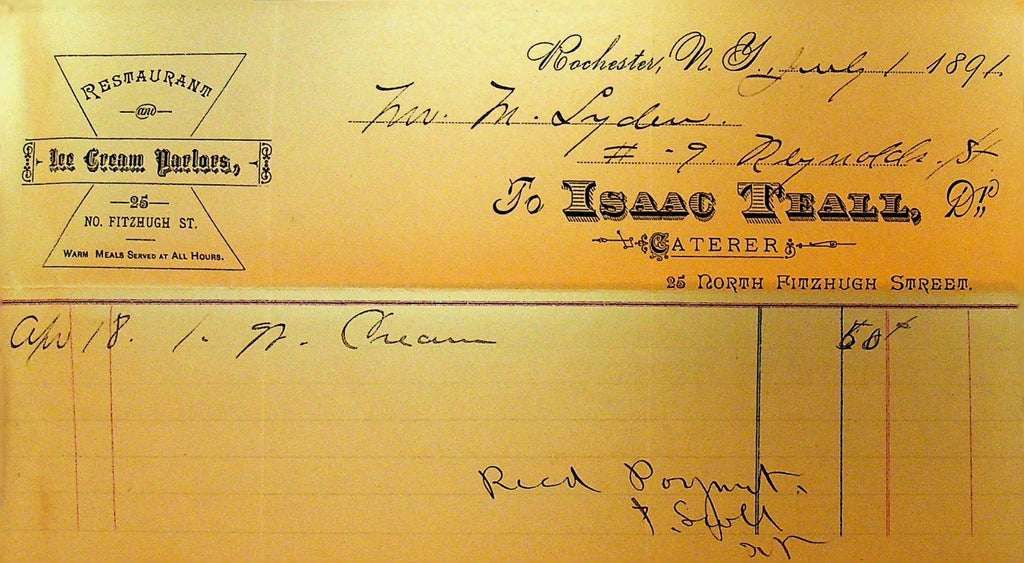 RESTAURANT
AND
Ice Cream Parlors,
25
NO. FITZHUGH ST.
WARM MEALS SERVED AT ALL HOURS.
Rochester, N. Y., July 1 1891
Mr. M. Lyden.
# 9. Reynolds St
To ISAAC TEALL, Dr.
CATERER
25 NORTH FITZHUGH STREET.
Apr 18. 1. qt. Cream 50¢
Recd Paymnt.